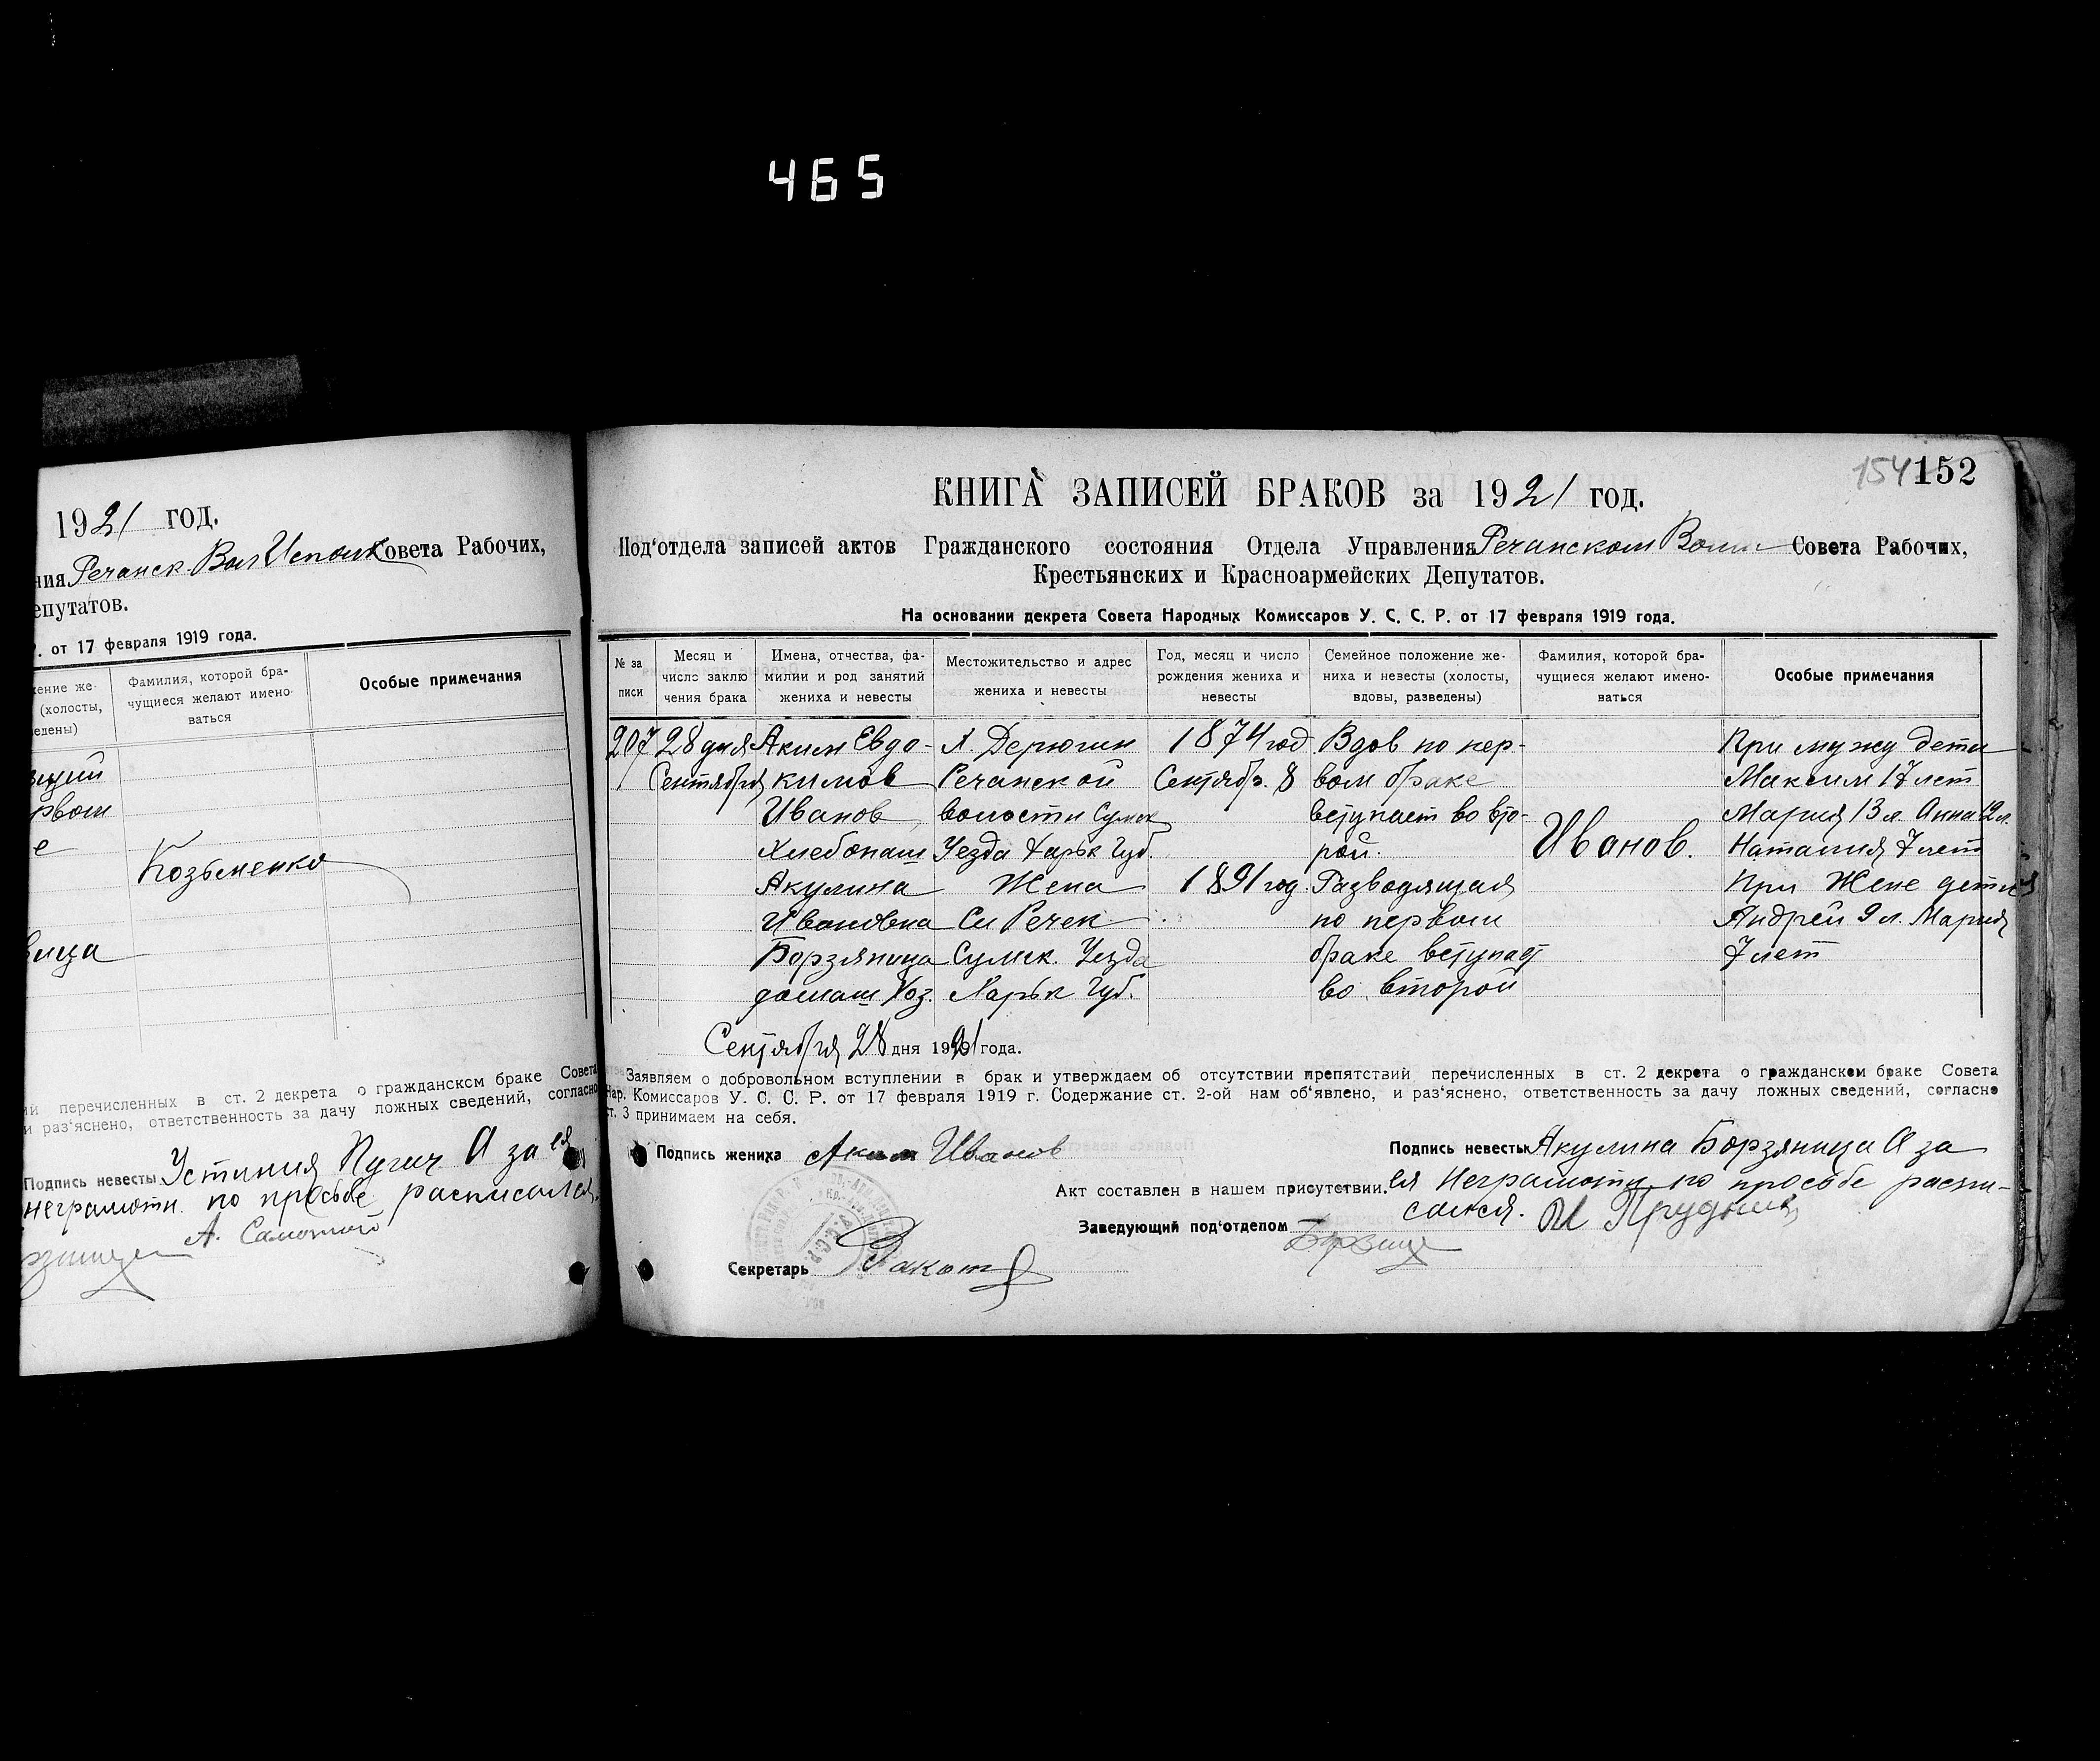 465
1921 год.
ния Речанск Вол Исполк Совета Рабочих,
епутатов.
Р. от 17 февраля 1919 года.
жение же-
(холосты,
ведены)
Фамилия, которой бра-
чущиеся желают имено-
ваться
Особые примечания
рвом
е
Козьменко
ии перечисленных в ст. 2 декрета о гражданском браке Совета
и раз‘яснено, ответственность за дачу ложных сведений, согласно
Подпись невесты Устиния Пугач А за ея
неграмотн. по просьбе расписался.
А. Самотой
154 152
КНИГА ЗАПИСЕЙ БРАКОВ за 1921 год.
Под‘отдела записей актов Гражданского состояния Отдела Управления Речанском Совета Рабочих,
Крестьянских и Красноармейских Депутатов.
На основании декрета Совета Народных Комиссаров У. С. С. Р. от 17 февраля 1919 года.
№ за
писи
Месяц и
число заклю
чения брака
Имена, отчества, фа-
милии и род занятий
жениха и невесты
Местожительство и адрес
жениха и невесты
Год, месяц и число
рождения жениха и
невесты
Семейное положение же-
ниха и невесты (холосты,
вдовы, разведены)
Фамилия, которой бра-
чущиеся желают имено-
ваться
Особые примечания
207 28 дня Аким Евдо- Х. Дерюгин 1874 год Вдов по пер- При мужу дети
Сентября кимов Речанской Сентябр. 8 вом браке Максим 17 лет
Иванов волости Сумск вступает во вто- Мария 13 л. Анна 12 л.
Хлебопаш Уезда Харьк Губ. рой. Иванов. Наталия 7 лет
Акулина Жена 1891 год. Разводящая При Жене дети
Ивановна Сл Речек по первом Андрей 9 л. Мария
Борзяница Сумск. Уезда браке вступает 7 лет
домаш Хоз. Харьк Губ. во второй
Сентября 28 дня 1921 года.
Заявляем о добровольном вступлении в брак и утверждаем об отсутствии препятствий перечисленных в ст. 2 декрета о гражданском браке Совета
Нар. Комиссаров У. С. С. Р. от 17 февраля 1919 г. Содержание ст. 2-ой нам об‘явлено, и раз‘яснено, ответственность за дачу ложных сведений, согласно
ст. 3 принимаем на себя.
Подпись жениха Аким Иванов
Подпись невесты Акулина Борзяница А за
Акт составлен в нашем присутствии. ея Неграмотн по просьбе распи-
сался.
Заведующий под‘отделом
Секретарь